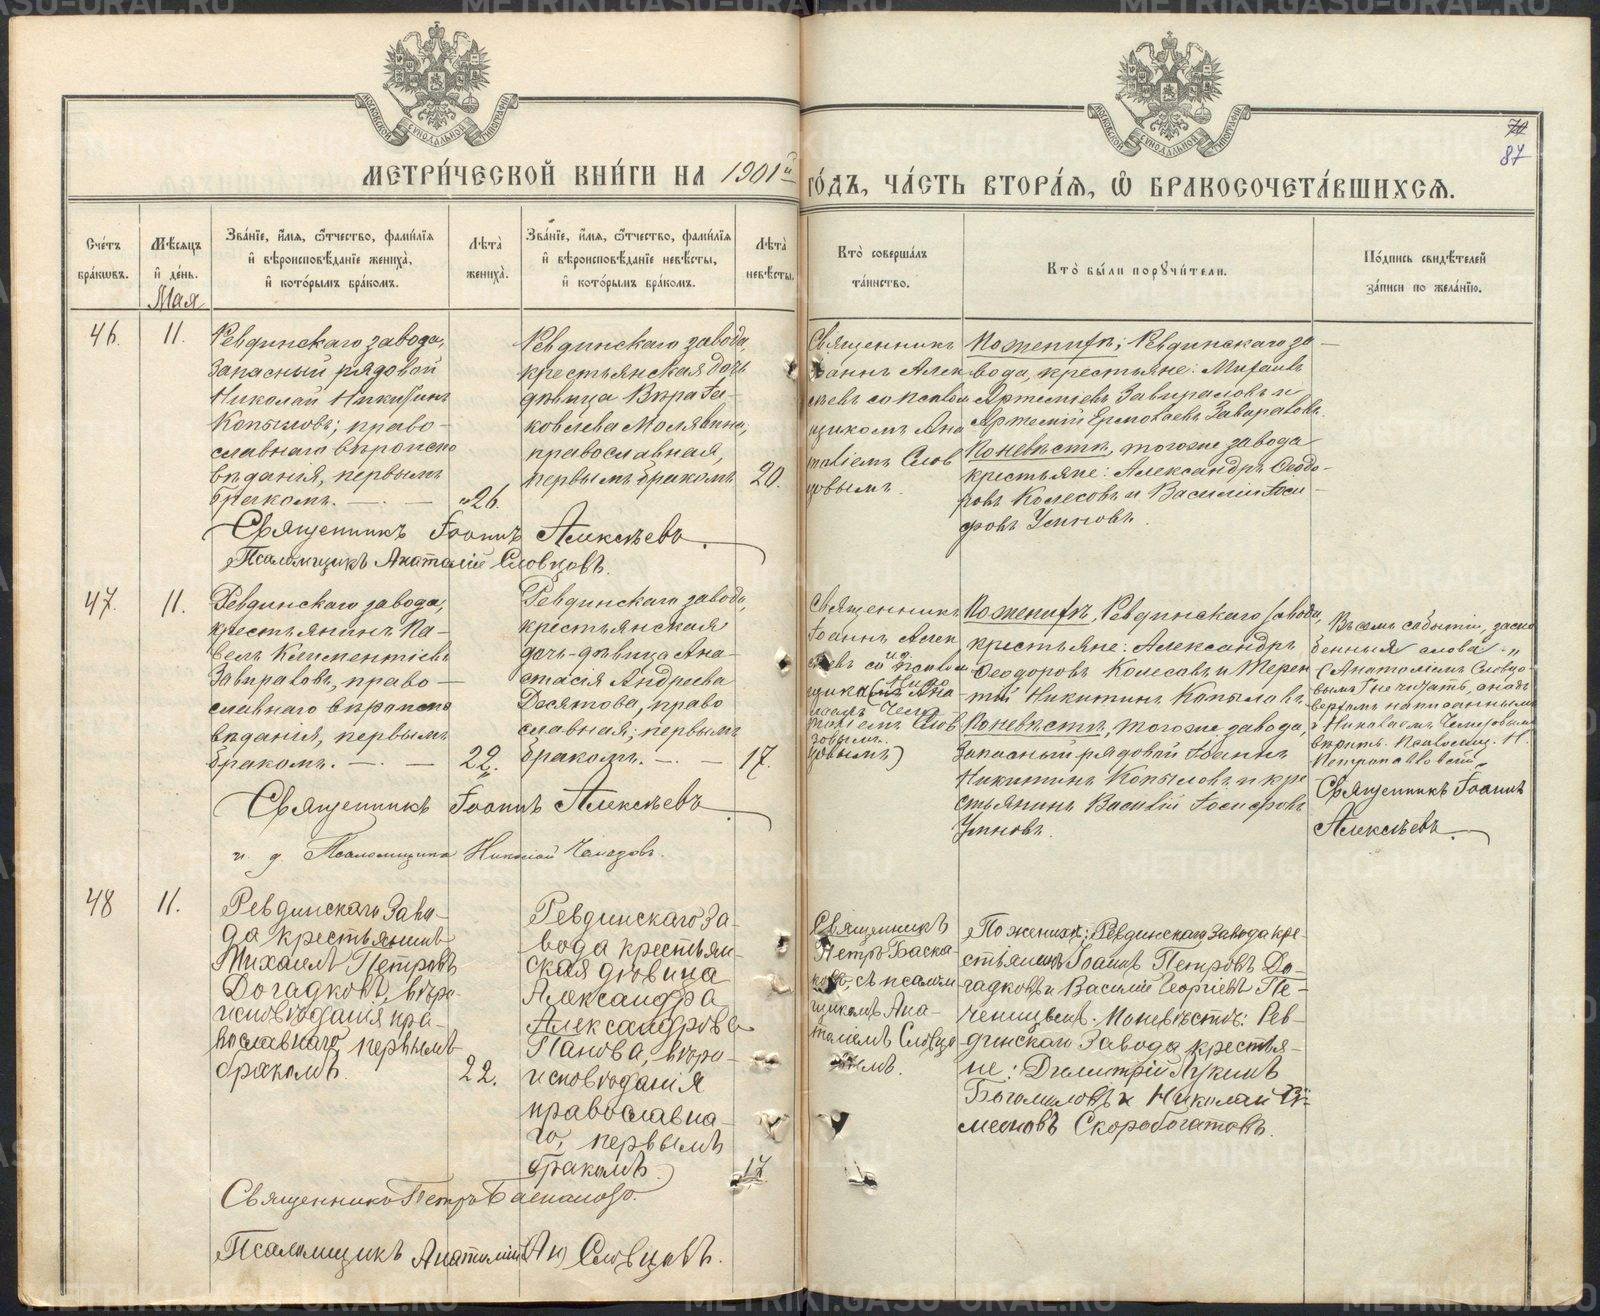 МЕТРИ́ЧЕСКОЙ КНИ́ГИ НА 1901й
ГО́ДЪ, ЧА́СТЬ ВТОРА́Я, Ѽ БРАКОСОЧЕТА́ВШИХСЯ.
87
Сче́тъ бра́кѡвъ.
Мѣ́сяцъ и҆ де́нь.
Мая
Зва́нїе, и҆́мя, ѻ҆́тчество, фами́лїя
и҆ вѣроисповѣ́данїе жениха̀,
и҆ кото́рымъ бра́комъ.
Лѣта̀ жениха̀.
Зва́нїе, и҆́мя, ѻ҆́тчество, фами́лїя
и҆ вѣроисповѣ́данїе невѣ́сты,
и҆ кото́рымъ бра́комъ.
Лѣта̀ невѣ́сты.
Кто̀ соверша́лъ
та́инство.
Кто̀ бы́ли поручи́тели.
По́дпись свидѣ́телей
за́писи по жела́нїю.
46.
11.
Ревдинскаго завода,
запасный рядовой
Николай Никитинъ
Копыловъ; право-
славнаго вѣроиспо
вѣданія, первымъ
бракомъ. —
26.
Ревдинскаго завода,
крестьянская дочь
дѣвица Вѣра Іа-
ковлева Молявина,
православная,
первымъ бракомъ
20.
Священникъ
Іоаннъ Алек
сѣевъ со псалом
щикомъ Ана
толіемъ Слов
цовымъ.
По женихѣ; Ревдинскаго за-
вода, крестьяне: Михаилъ
Артеміевъ Завираловъ и
Артемій Ермолаевъ Завираловъ.
По невѣстѣ, тогоже завода
крестьяне: Александръ Ѳеодо-
ровъ Колесовъ и Василій Іоси-
фовъ Умновъ.
Священникъ Іоаннъ Алексѣевъ.
Псаломщикъ Анатолій Словцовъ.
47.
11.
Ревдинскаго завода,
крестьянинъ Па-
велъ Климентіевъ
Завираловъ, право-
славнаго вѣроиспо
вѣданія, первымъ
бракомъ. —
22.
Ревдинскаго завода,
крестьянская
дочь-дѣвица Ана-
стасія Андреева
Десятова, право
славная, первымъ
бракомъ. —
17.
Священникъ
Іоаннъ Алек
сѣевъ со и.д. псалом
щика (мъ Ана
Нико
лаемъ Чеме
толіемъ Слов
зовымъ.
цовымъ)
По женихѣ, Ревдинскаго завода,
крестьяне: Александръ
Ѳеодоровъ Колесовъ и Терен
тій Никитинъ Копыловъ.
По невѣстѣ, тогоже завода,
запасный рядовой Іоаннъ
Никитинъ Копыловъ и кре
стьянинъ Василій Іосифовъ
Умновъ.
Въ семъ событіи, заско
бенныя слова „
(Анатоліемъ Словцо-
вымъ) не читать, а надъ
верхомъ написаннымъ
Николаемъ Чемезовымъ
вѣрить. Псаломщ. Н.
Петропавловскій
Священникъ Іоаннъ
Алексѣевъ.
Священникъ Іоаннъ Алексѣевъ
и. д. Псаломщика Николай Чемезовъ.
48
11.
Ревдинскаго Заво-
да крестьянинъ
Михаилъ Петровъ
Догадковъ, вѣро-
исповѣданія пра-
вославнаго, первымъ
бракомъ.
22.
Ревдинскаго За-
вода крестьян-
ская дѣвица
Александра
Александрова
Панова, вѣро-
исповѣданія
православна-
го, первымъ
бракомъ.
17.
Священникъ
Петръ Баска
ковъ, съ псалом
щикомъ Ана-
толіемъ Словцо
вымъ.
По женихѣ: Ревдинскаго Завода кре-
стьянинъ Іоаннъ Петровъ До-
гадковъ и Василій Георгіевъ Пе-
ченицынъ. По невѣстѣ: Рев-
динскаго Завода крестья-
не: Димитрій Лукинъ
Богомоловъ и Николай Си-
меоновъ Скоробогатовъ.
Священникъ Петръ Баскаковъ.
Псаломщикъ Анатолій (Ан) Словцовъ.